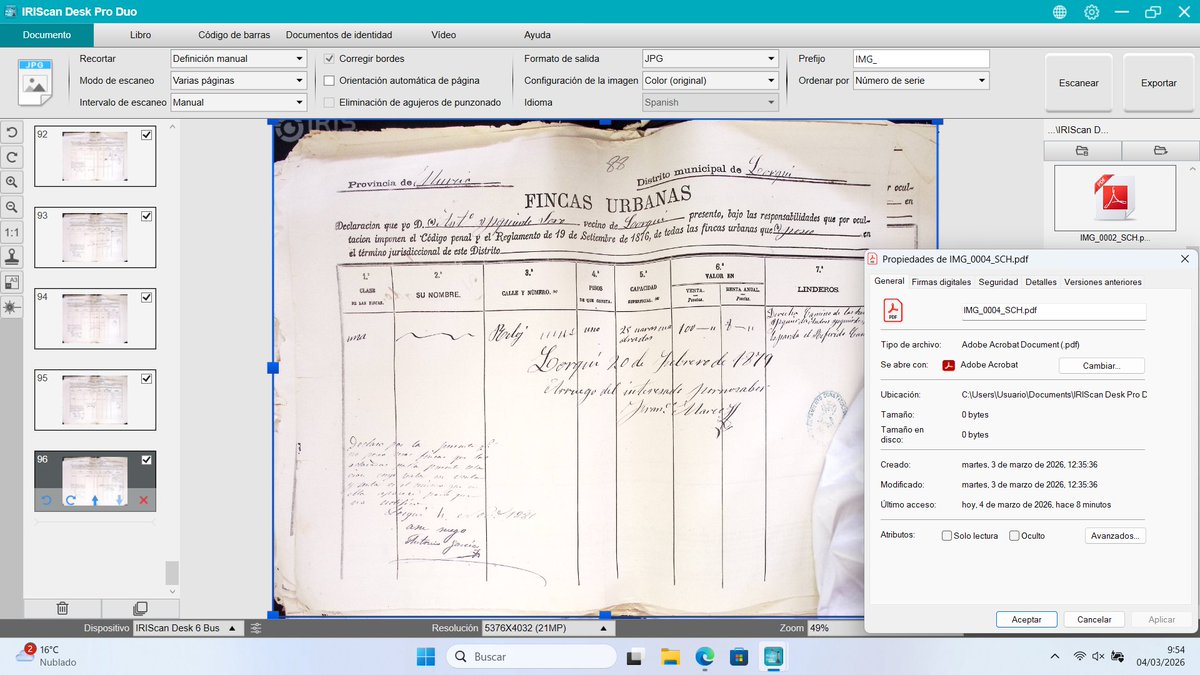 IRIScan Desk Pro Duo
Documento
Libro
Código de barras
Documentos de identidad
Vídeo
Ayuda
JPG
Recortar
Definición manual
Modo de escaneo
Varias páginas
Intervalo de escaneo
Manual
Corregir bordes
Orientación automática de página
Eliminación de agujeros de punzonado
Formato de salida
JPG
Configuración de la imagen
Color (original)
Idioma
Spanish
Prefijo
IMG_
Ordenar por
Número de serie
Escanear
Exportar
92
93
94
95
96
1:1
IRIS
88
Provincia de Murcia
Distrito municipal de Lorquí
FINCAS URBANAS
Declaracion que yo D. (a) vecino de Lorquí presento, bajo las responsabilidades que por ocul-
tacion imponen el Código penal y el Reglamento de 19 de Setiembre de 1876, de todas las fincas urbanas que (b) poseo en
el término jurisdiccional de este Distrito
r ocul-
en
1.ª
CLASE
DE LAS FINCAS.
2.ª
SU NOMBRE.
3.ª
CALLE Y NÚMERO.
4.ª
PISOS
DE QUE CONSTA.
5.ª
CAPACIDAD
SUPERFICIAL.
6.ª
VALOR EN
VENTA.
Pesetas.
RENTA ANUAL.
Pesetas.
7.ª
LINDEROS.
una
uno
25 varas cua
dradas
100
Lorquí 20 de Febrero de 1879
A ruego del interesado por no saber
Fran.co Marco
Lorquí
1881
a su ruego
Antonio García
...\IRIScan D...
IMG_0002_SCH.p...
Propiedades de IMG_0004_SCH.pdf
General
Firmas digitales
Seguridad
Detalles
Versiones anteriores
PDF
IMG_0004_SCH.pdf
Tipo de archivo:
Adobe Acrobat Document (.pdf)
Se abre con:
Adobe Acrobat
Cambiar...
Ubicación:
C:\Users\Usuario\Documents\IRIScan Desk Pro D
Tamaño:
0 bytes
Tamaño en
disco:
0 bytes
Creado:
martes, 3 de marzo de 2026, 12:35:36
Modificado:
martes, 3 de marzo de 2026, 12:35:36
Último acceso:
hoy, 4 de marzo de 2026, hace 8 minutos
Atributos:
Solo lectura
Oculto
Avanzados...
Aceptar
Cancelar
Aplicar
Dispositivo
IRIScan Desk 6 Bus
Resolución
5376X4032 (21MP)
Zoom
49%
2
16°C
Nublado
Buscar
9:54
04/03/2026